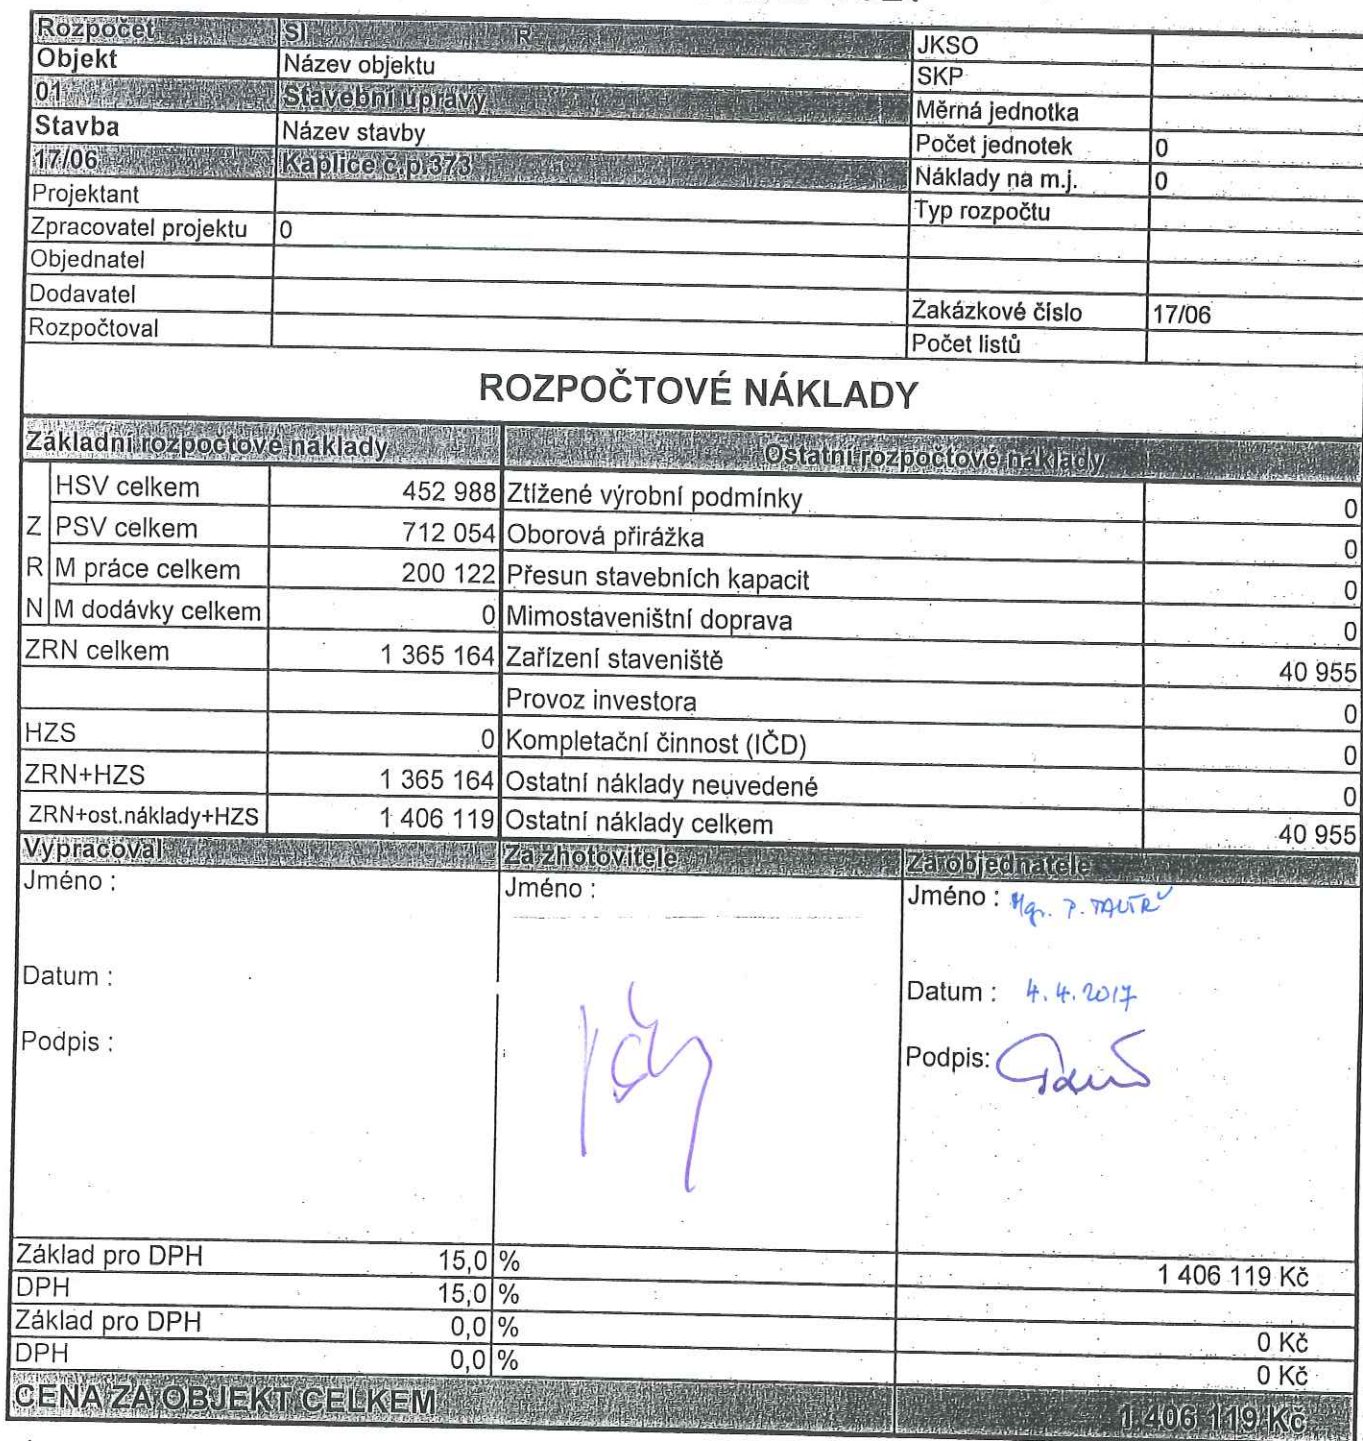 Rozpočet
JKSO
Objekt Název objektu
SKP
01 Stavební úpravy
Měrná jednotka
Stavba Název stavby
Počet jednotek 0
17/06 Kaplice č.p.373
Náklady na m.j. 0
Projektant
Typ rozpočtu
Zpracovatel projektu 0
Objednatel
Dodavatel
Zakázkové číslo 17/06
Rozpočtoval
Počet listů
ROZPOČTOVÉ NÁKLADY
Základní rozpočtové náklady Ostatní rozpočtové náklady
HSV celkem 452 988 Ztížené výrobní podmínky 0
Z PSV celkem 712 054 Oborová přirážka 0
R M práce celkem 200 122 Přesun stavebních kapacit 0
N M dodávky celkem 0 Mimostaveništní doprava 0
ZRN celkem 1 365 164 Zařízení staveniště 40 955
Provoz investora 0
HZS 0 Kompletační činnost (IČD) 0
ZRN+HZS 1 365 164 Ostatní náklady neuvedené 0
ZRN+ost.náklady+HZS 1 406 119 Ostatní náklady celkem 40 955
Vypracoval Za zhotovitele Za objednatele
Jméno : Jméno : Jméno : Mgr. P.
Datum : Datum : 4.4.2017
Podpis : Podpis:
Základ pro DPH 15,0 % 1 406 119 Kč
DPH 15,0 %
Základ pro DPH 0,0 % 0 Kč
DPH 0,0 % 0 Kč
CENA ZA OBJEKT CELKEM 1 406 119 Kč